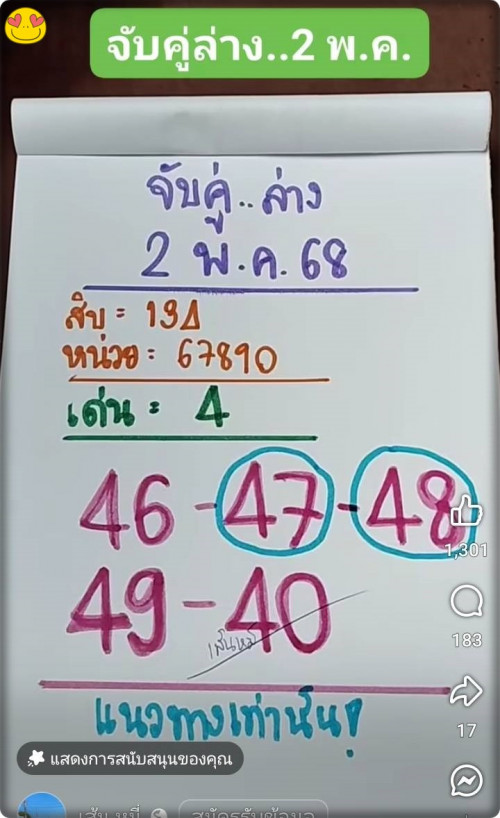 จับคู่ล่าง..2 พ.ค.
จับคู่..ล่าง
2 พ.ค. 68
สิบ = 134
หน่วย = 67890
เด่น = 4
46 - 47 - 48
1,301
49 - 40
เส้นหมี่
183
แนวทางเท่านั้น!
17
แสดงการสนับสนุนของคุณ
เส้น หมี่
สมัครรับข้อมูล